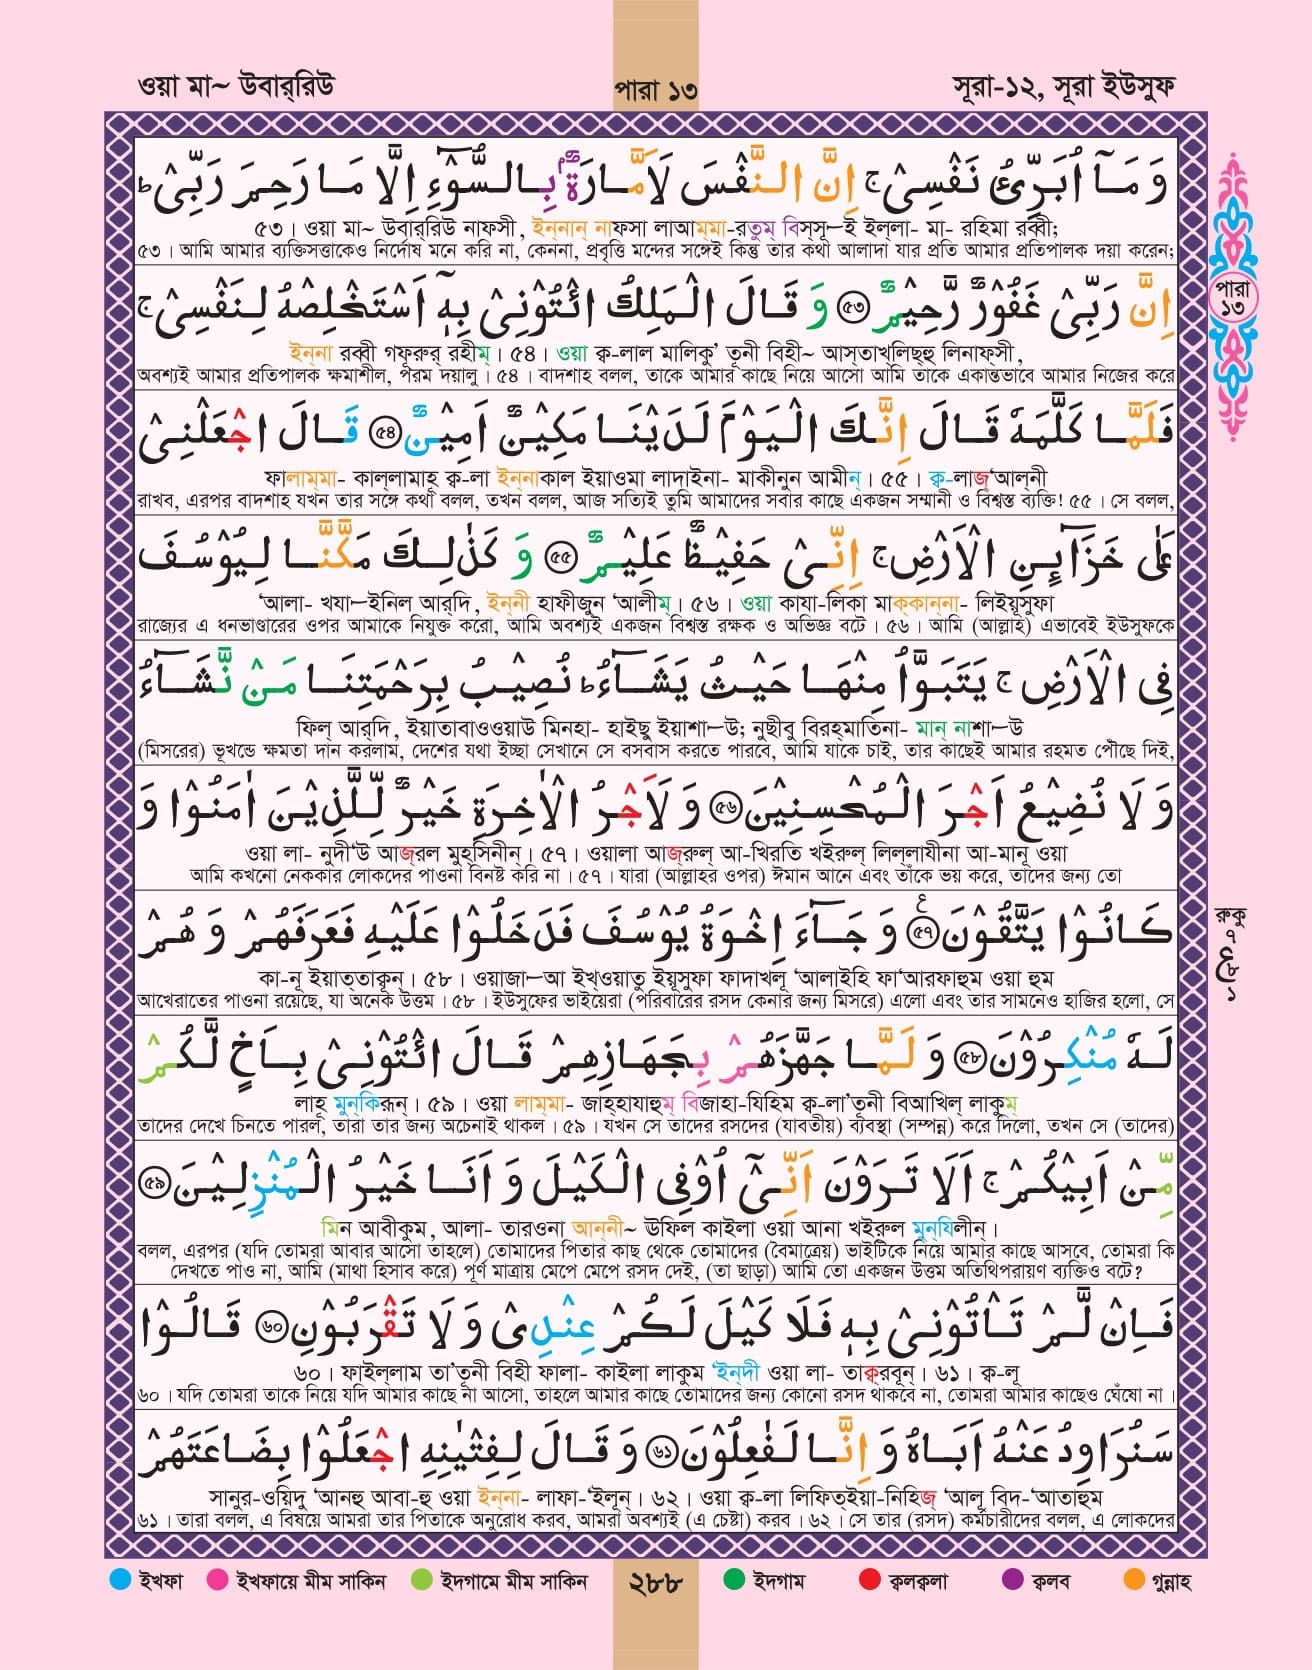 ওয়া মা~ উবার্‌রিউ
পারা ১৩
সূরা-১২, সূরা ইউসুফ
وَ مَاۤ اُبَرِّئُ نَفْسِیْ ۚ اِنَّ النَّفْسَ لَاَمَّارَةٌۢ بِالسُّوْٓءِ اِلَّا مَا رَحِمَ رَبِّیْ ؕ
৫৩। ওয়া মা~ উবার্‌রিউ নাফসী, ইন্‌নান্ নাফসা লাআম্‌মা-রতুম্ বিস্‌সূ—ই ইল্‌লা- মা- রহিমা রব্বী;
৫৩। আমি আমার ব্যক্তিসত্তাকেও নির্দোষ মনে করি না, কেননা, প্রবৃত্তি মন্দের সঙ্গেই কিন্তু তার কথা আলাদা যার প্রতি আমার প্রতিপালক দয়া করেন;
اِنَّ رَبِّیْ غَفُوْرٌ رَّحِیْمٌ ﴿৫৩﴾ وَ قَالَ الْمَلِكُ ائْتُوْنِیْ بِهٖۤ اَسْتَخْلِصْهُ لِنَفْسِیْ ۚ
ইন্‌না রব্বী গফূরুর্ রহীম্। ৫৪। ওয়া ক্ব-লাল মালিকু' তূনী বিহী~ আস্‌তাখ্‌লিছ্‌হু লিনাফ্‌সী,
অবশ্যই আমার প্রতিপালক ক্ষমাশীল, পরম দয়ালু। ৫৪। বাদশাহ বলল, তাকে আমার কাছে নিয়ে আসো আমি তাকে একান্তভাবে আমার নিজের করে
فَلَمَّا كَلَّمَهٗ قَالَ اِنَّكَ الْیَوْمَ لَدَیْنَا مَكِیْنٌ اَمِیْنٌ ﴿৫৪﴾ قَالَ اجْعَلْنِیْ
ফালাম্‌মা- কাল্‌লামাহূ ক্ব-লা ইন্‌নাকাল ইয়াওমা লাদাইনা- মাকীনুন আমীন্। ৫৫। ক্ব-লাজ্‌‘আল্‌নী
রাখব, এরপর বাদশাহ যখন তার সঙ্গে কথা বলল, তখন বলল, আজ সত্যিই তুমি আমাদের সবার কাছে একজন সম্মানী ও বিশ্বস্ত ব্যক্তি! ৫৫। সে বলল,
عَلٰی خَزَآىِٕنِ الْاَرْضِ ۚ اِنِّیْ حَفِیْظٌ عَلِیْمٌ ﴿৫৫﴾ وَ كَذٰلِكَ مَكَّنَّا لِیُوْسُفَ
‘আলা- খযা—ইনিল আর্‌দি, ইন্‌নী হাফীজুন ‘আলীম্। ৫৬। ওয়া কাযা-লিকা মাক্‌কান্‌না- লিইয়ূসুফা
রাজ্যের এ ধনভাণ্ডারের ওপর আমাকে নিযুক্ত করো, আমি অবশ্যই একজন বিশ্বস্ত রক্ষক ও অভিজ্ঞ বটে। ৫৬। আমি (আল্লাহ) এভাবেই ইউসুফকে
فِی الْاَرْضِ ۚ یَتَبَوَّاُ مِنْهَا حَیْثُ یَشَآءُ ؕ نُصِیْبُ بِرَحْمَتِنَا مَنْ نَّشَآءُ
ফিল্ আর্‌দি, ইয়াতাবাওওয়াউ মিনহা- হাইছু ইয়াশা—উ; নুছীবু বিরহ্‌মাতিনা- মান্ নাশা—উ
(মিসরের) ভূখন্ডে ক্ষমতা দান করলাম, দেশের যথা ইচ্ছা সেখানে সে বসবাস করতে পারবে, আমি যাকে চাই, তার কাছেই আমার রহমত পৌঁছে দিই,
وَ لَا نُضِیْعُ اَجْرَ الْمُحْسِنِیْنَ ﴿৫৬﴾ وَ لَاَجْرُ الْاٰخِرَةِ خَیْرٌ لِّلَّذِیْنَ اٰمَنُوْا وَ
ওয়া লা- নুদী‘উ আজ্‌রল মুহ্‌সিনীন্। ৫৭। ওয়ালা আজ্‌রুল্ আ-খিরতি খইরুল্ লিল্‌লাযীনা আ-মানূ ওয়া
আমি কখনো নেককার লোকদের পাওনা বিনষ্ট করি না। ৫৭। যারা (আল্লাহর ওপর) ঈমান আনে এবং তাঁকে ভয় করে, তাদের জন্য তো
كَانُوْا یَتَّقُوْنَ ﴿৫৭﴾ ع وَ جَآءَ اِخْوَةُ یُوْسُفَ فَدَخَلُوْا عَلَیْهِ فَعَرَفَهُمْ وَ هُمْ
কা-নূ ইয়াত্‌তাকূন্। ৫৮। ওয়াজা—আ ইখ্‌ওয়াতু ইয়ূসুফা ফাদাখলূ ‘আলাইহি ফা‘আরফাহুম ওয়া হুম
আখেরাতের পাওনা রয়েছে, যা অনেক উত্তম। ৫৮। ইউসুফের ভাইয়েরা (পরিবারের রসদ কেনার জন্য মিসরে) এলো এবং তার সামনেও হাজির হলো, সে
لَهٗ مُنْكِرُوْنَ ﴿৫৮﴾ وَ لَمَّا جَهَّزَهُمْ بِجَهَازِهِمْ قَالَ ائْتُوْنِیْ بِاَخٍ لَّكُمْ
লাহূ মুন্‌কিরূন্। ৫৯। ওয়া লাম্‌মা- জাহ্‌হাযাহুম্ বিজাহা-যিহিম ক্ব-লা'তূনী বিআখিল্ লাকুম্
তাদের দেখে চিনতে পারল, তারা তার জন্য অচেনাই থাকল। ৫৯। যখন সে তাদের রসদের (যাবতীয়) ব্যবস্থা (সম্পন্ন) করে দিলো, তখন সে (তাদের)
مِّنْ اَبِیْكُمْ ۚ اَلَا تَرَوْنَ اَنِّیْۤ اُوْفِی الْكَیْلَ وَ اَنَا خَیْرُ الْمُنْزِلِیْنَ ﴿৫৯﴾
মিন আবীকুম, আলা- তারওনা আন্‌নী~ ঊফিল কাইলা ওয়া আনা খইরুল মুন্‌যিলীন্।
বলল, এরপর (যদি তোমরা আবার আসো তাহলে) তোমাদের পিতার কাছ থেকে তোমাদের (বৈমাত্রেয়) ভাইটিকে নিয়ে আমার কাছে আসবে, তোমরা কি
দেখতে পাও না, আমি (মাথা হিসাব করে) পূর্ণ মাত্রায় মেপে মেপে রসদ দেই, (তা ছাড়া) আমি তো একজন উত্তম অতিথিপরায়ণ ব্যক্তিও বটে?
فَاِنْ لَّمْ تَاْتُوْنِیْ بِهٖ فَلَا كَیْلَ لَكُمْ عِنْدِیْ وَ لَا تَقْرَبُوْنِ ﴿৬০﴾ قَالُوْا
৬০। ফাইল্‌লাম তা'তূনী বিহী ফালা- কাইলা লাকুম ‘ইন্‌দী ওয়া লা- তাক্বরবূন্। ৬১। ক্ব-লূ
৬০। যদি তোমরা তাকে নিয়ে যদি আমার কাছে না আসো, তাহলে আমার কাছে তোমাদের জন্য কোনো রসদ থাকবে না, তোমরা আমার কাছেও ঘেঁষো না।
سَنُرَاوِدُ عَنْهُ اَبَاهُ وَ اِنَّا لَفٰعِلُوْنَ ﴿৬১﴾ وَ قَالَ لِفِتْیٰنِهِ اجْعَلُوْا بِضَاعَتَهُمْ
সানুর-ওয়িদু ‘আনহু আবা-হু ওয়া ইন্‌না- লাফা-‘ইলূন্। ৬২। ওয়া ক্ব-লা লিফিত্‌ইয়া-নিহিজ্ ‘আলূ বিদ-‘আতাহুম
৬১। তারা বলল, এ বিষয়ে আমরা তার পিতাকে অনুরোধ করব, আমরা অবশ্যই (এ চেষ্টা) করব। ৬২। সে তার (রসদ) কর্মচারীদের বলল, এ লোকদের
পারা
১৩
রুকু
৭
ع ৮
১
ইখফা
ইখফায়ে মীম সাকিন
ইদগামে মীম সাকিন
২৮৮
ইদগাম
ক্বলক্বলা
ক্বলব
গুন্নাহ